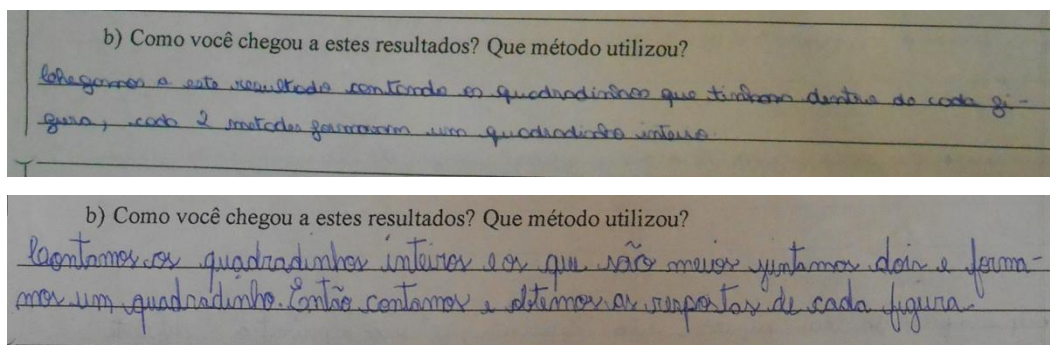 b) Como você chegou a estes resultados? Que método utilizou?
Chegamos a este resultado contando os quadradinhos que tinham dentro de cada fi-
gura, cada 2 metades formavam um quadradinho inteiro.
b) Como você chegou a estes resultados? Que método utilizou?
Contamos os quadradinhos inteiros e os que são meios juntamos dois e forma-
mos um quadradinho. Então contamos e obtemos as respostas de cada figura.